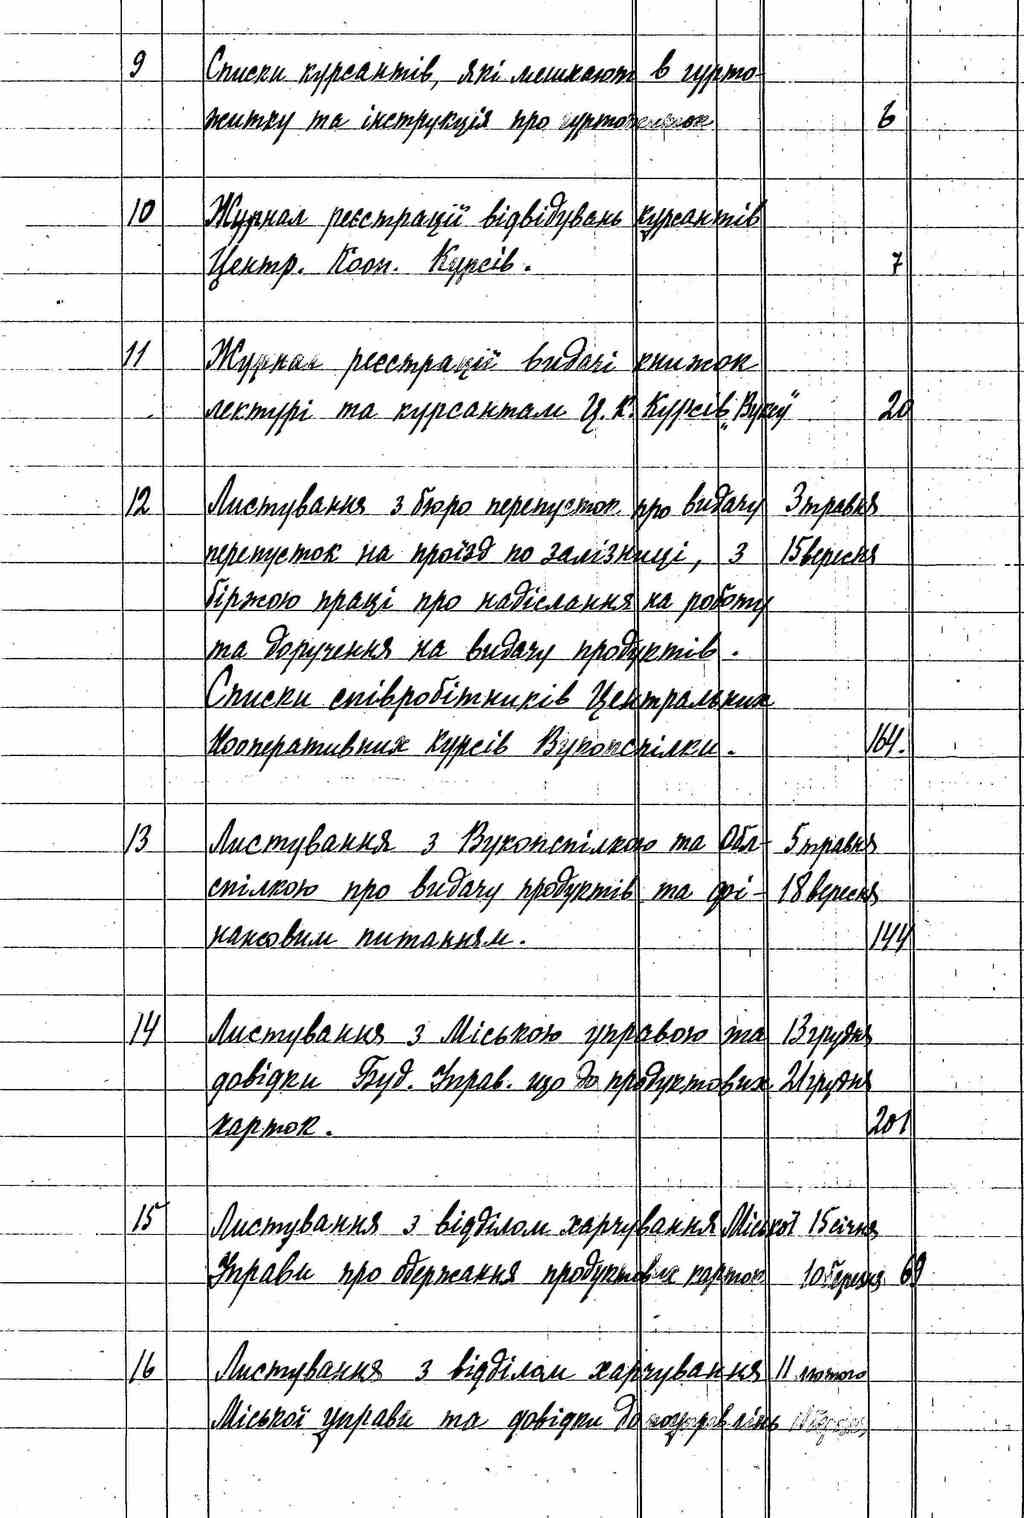 9 Списки курсантів, які мешкают в гурто-
житку та інструкція про гуртожиток 6
10 Журнал реєстрації відвідувань курсантів
Центр. Кооп. Курсів. 7
11 Журнал реєстрації видачі книжок
лектурі та курсантам Ц. К. Курсів „Вуку" 20
12 Листування з бюро перепусток про видачу 3 травня
перепусток на проїзд по залізниці, з 15 вересня
біржою праці про надіслання на роботу
та доручення на видачу продуктів.
Списки співробітників Центральних
Кооперативних Курсів Вукопспілки. 164.
13 Листування з Вукопспілкою та Обл- 5 травня
спілкою про видачу продуктів та фі- 18 вересня
нансовим питанням. 144
14 Листування з Міською управою та 13 грудня
довідки Буд. Управ. що до продуктових 21 грудня
карток. 201
15 Листування з відділом харчування Міської 15 січня
Управи про одержання продуктових карток 10 березня 69
16 Листування з відділом харчування 11 лютого
Міської управи та довідки